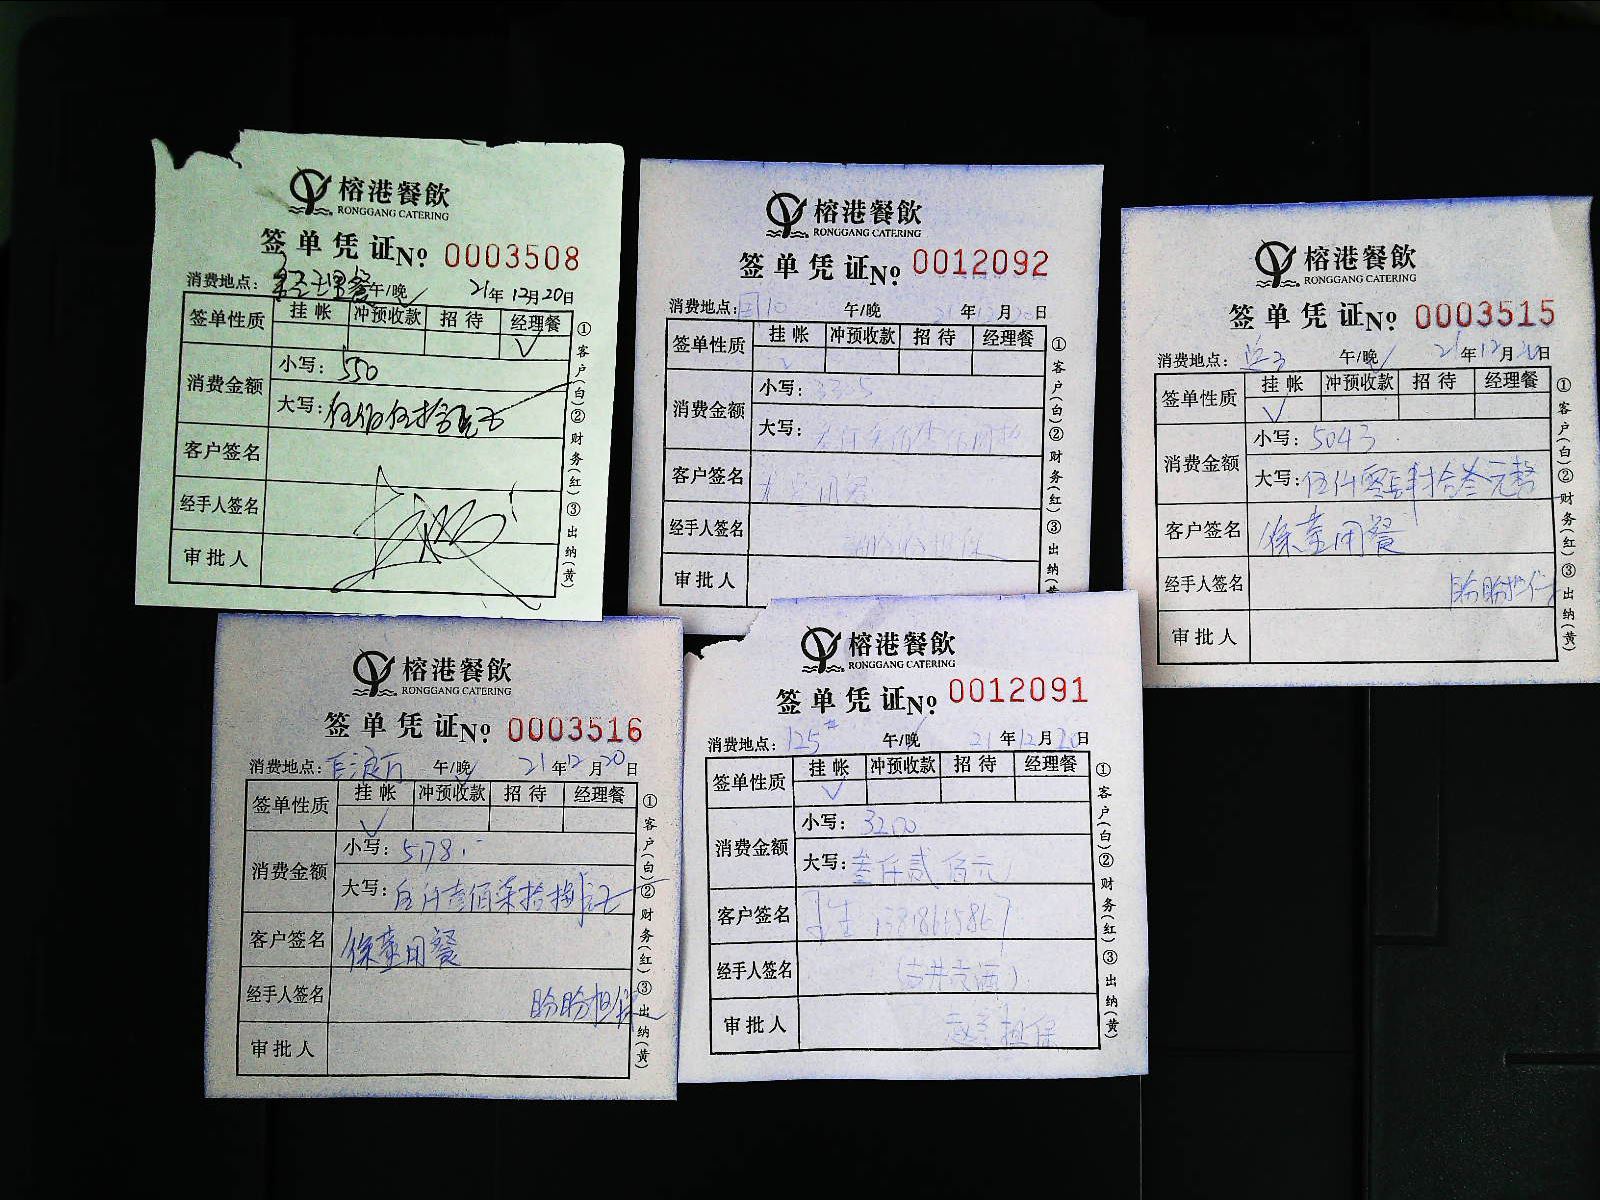 榕港餐飲
RONGGANG CATERING
签单凭证No 0003508
消费地点: 经理餐 午/晚 21年12月20日
签单性质 挂帐 冲预收款 招待 经理餐
消费金额 小写: 550
大写: 伍佰伍拾元
客户签名
经手人签名
审批人
①客户(白)②财务(红)③出纳(黄)
榕港餐飲
RONGGANG CATERING
签单凭证No 0012092
消费地点: 午/晚 21年12月20日
签单性质 挂帐 冲预收款 招待 经理餐
消费金额 小写:
大写:
客户签名 用餐
经手人签名 担保
审批人
①客户(白)②财务(红)③出纳(黄)
榕港餐飲
RONGGANG CATERING
签单凭证No 0003515
消费地点: 午/晚 21年12月20日
签单性质 挂帐 冲预收款 招待 经理餐
消费金额 小写: 5043
大写: 伍仟零肆拾叁元整
客户签名 徐董用餐
经手人签名 盼盼担保
审批人
①客户(白)②财务(红)③出纳(黄)
榕港餐飲
RONGGANG CATERING
签单凭证No 0003516
消费地点: 午/晚 21年12月20日
签单性质 挂帐 冲预收款 招待 经理餐
消费金额 小写: 5178
大写: 伍仟壹佰柒拾捌元
客户签名 徐董用餐
经手人签名 盼盼担保
审批人
①客户(白)②财务(红)③出纳(黄)
榕港餐飲
RONGGANG CATERING
签单凭证No 0012091
消费地点: 125# 午/晚 21年12月20日
签单性质 挂帐 冲预收款 招待 经理餐
消费金额 小写: 3200
大写: 叁仟贰佰元
客户签名
经手人签名
审批人 担保
①客户(白)②财务(红)③出纳(黄)